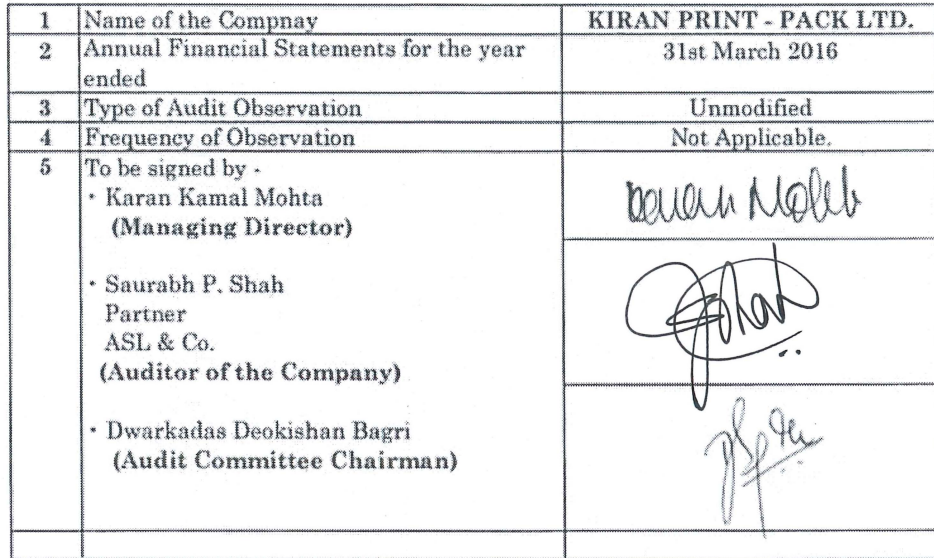 1 Name of the Compnay KIRAN PRINT - PACK LTD.
2 Annual Financial Statements for the year 31st March 2016
ended
3 Type of Audit Observation Unmodified
4 Frequency of Observation Not Applicable.
5 To be signed by -
· Karan Kamal Mohta
(Managing Director)
· Saurabh P. Shah
Partner
ASL & Co.
(Auditor of the Company)
· Dwarkadas Deokishan Bagri
(Audit Committee Chairman)